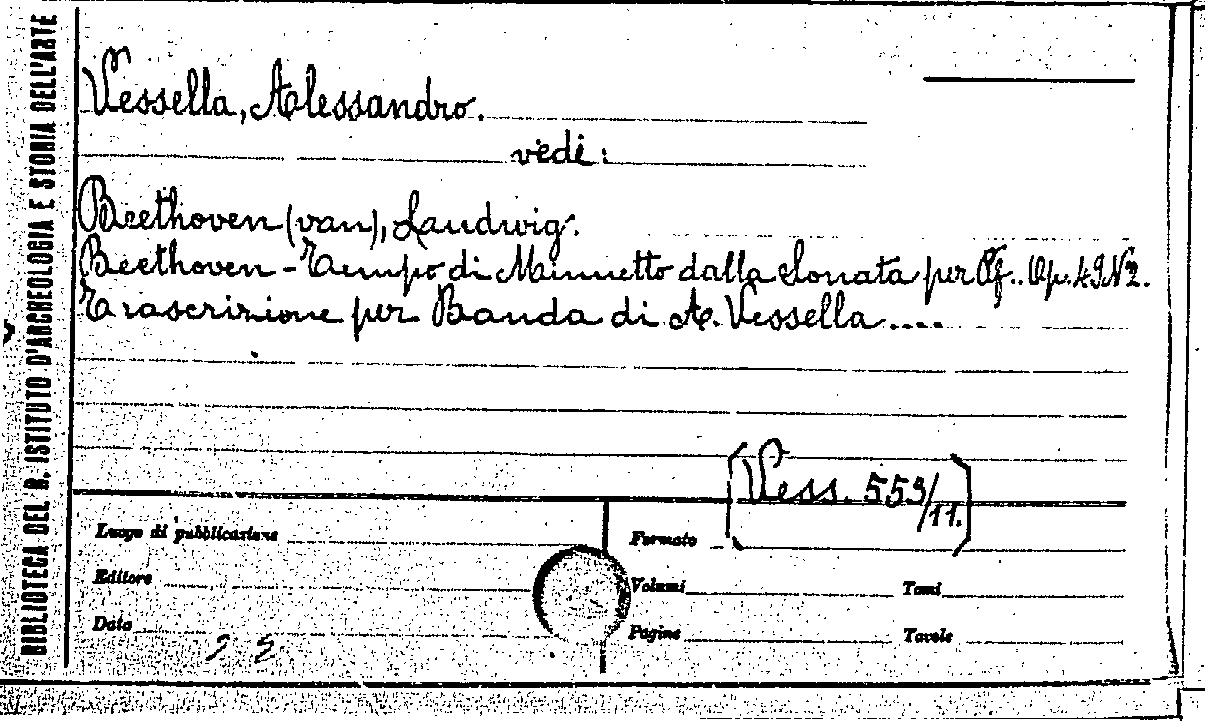 BIBLIOTECA DEL R. ISTITUTO D'ARCHEOLOGIA E STORIA DELL'ARTE
Vessella, Alessandro.
vedi:
Beethoven (van), Laudwig.
Beethoven - Tempo di Minuetto dalla Sonata per Pf.. Op. 49 N 2.
Trascrizione per Banda di A. Vessella ....
[Vess. 553/11.]
Luogo di pubblicazione
Formato
Editore
Volumi
Tomi
Data
Pagine
Tavole